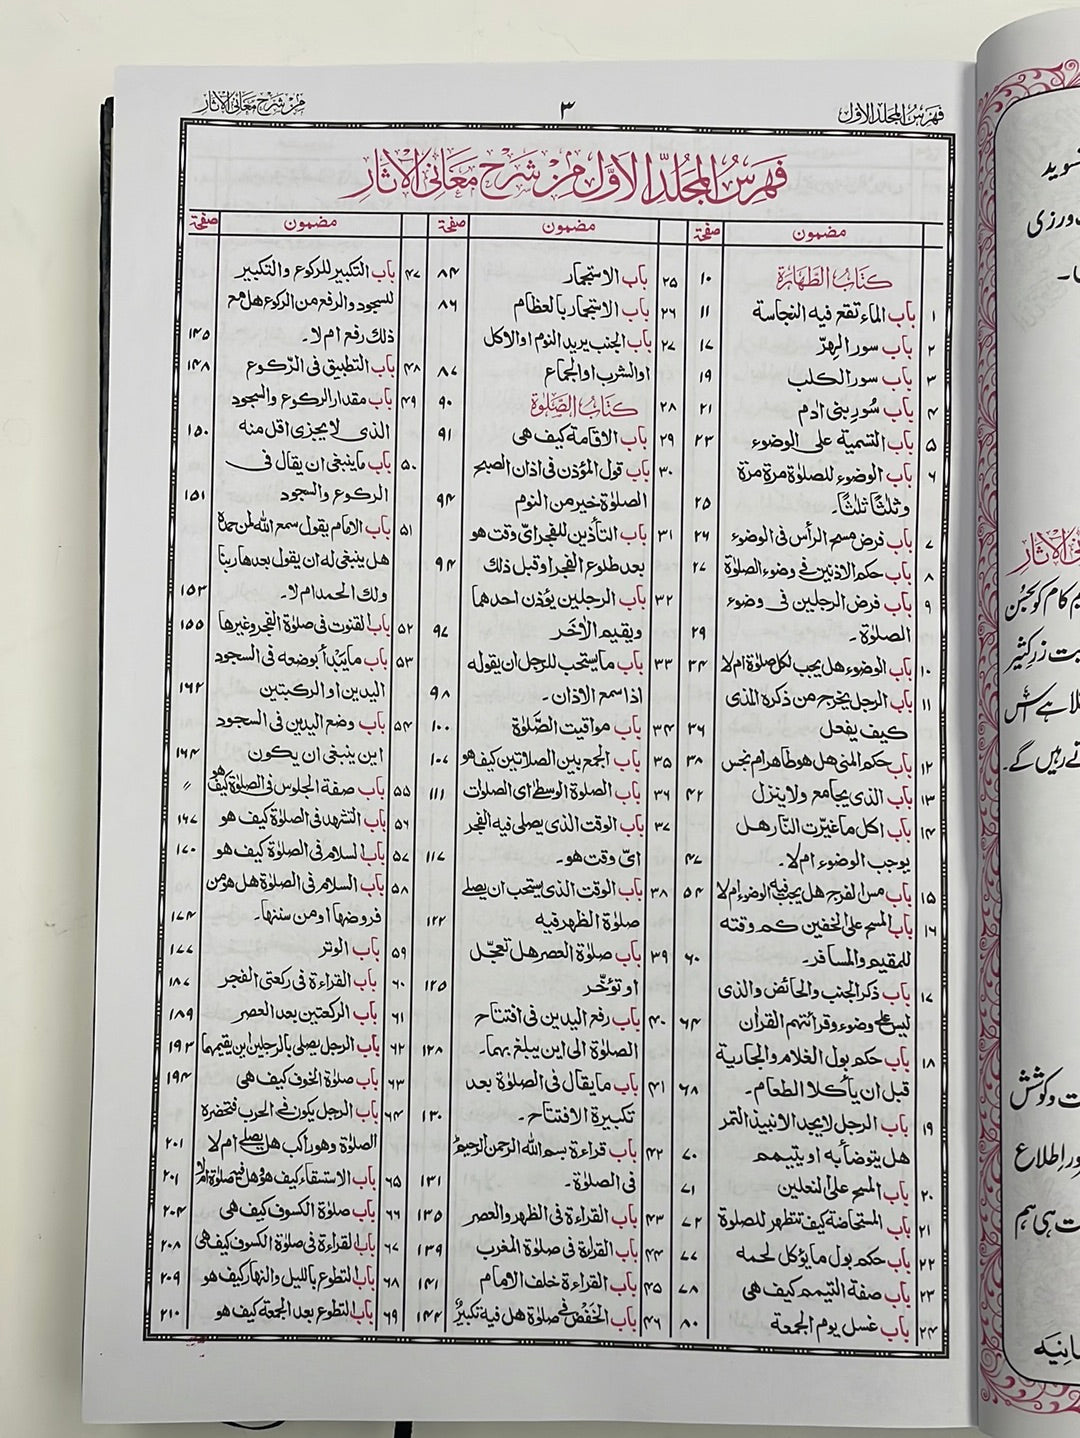 فهرس المجلد الاول
٣
من شرح معانى الآثار
فهرس المجلد الاول من شرح معانى الآثار
مضمون
صفحة
مضمون
صفحة
مضمون
صفحة
كتاب الطهارة ١٠
١ باب الماء تقع فيه النجاسة ١١
٢ باب سور الهرّ ١٧
٣ باب سور الكلب ١٩
٤ باب سُور بنى ادم ٢١
٥ باب التسمية على الوضوء ٢٣
٦ باب الوضوء للصلوٰة مرة مرة
وثلثًا ثلثًا۔ ٢٥
٧ باب فرض مسح الرأس فى الوضوء ٢٦
٨ باب حكم الاذنين فى وضوء الصلوٰة ٢٧
٩ باب فرض الرجلين فى وضوء
الصلوٰة۔ ٢٩
١٠ باب الوضوء هل يجب لكل صلوٰة ام لا ٣٤
١١ باب الرجل يخرج من ذكره المذى
كيف يفعل ٣٦
١٢ باب حكم المنى هل هو طاهر ام نجس ٣٨
١٣ باب الذى يجامع ولا ينزل ٤٢
١٤ باب اكل ما غيّرت النّار هل
يوجب الوضوء ام لا۔ ٤٧
١٥ باب مس الفرج هل يجب فيه الوضوء ام لا ٥٤
١٦ باب المسح على الخفين كم وقته
للمقيم والمسافر۔ ٦٠
١٧ باب ذكر الجنب والحائض والذى
ليس على وضوء وقرائتهم القران ٦٤
١٨ باب حكم بول الغلام والجارية
قبل ان يأكلا الطعام۔ ٦٨
١٩ باب الرجل لا يجد الا نبيذ التمر
هل يتوضأ به او يتيمم ٧٠
٢٠ باب المسح على النعلين ٧١
٢١ باب المستحاضة كيف تتطهر للصلوة ٧٢
٢٢ باب حكم بول ما يؤكل لحمه ٧٧
٢٣ باب صفة التيمم كيف هى ٧٨
٢٤ باب غسل يوم الجمعة ٨٠
٢٥ باب الاستجمار ٨٤
٢٦ باب الاستجمار بالعظام ٨٦
٢٧ باب الجنب يريد النوم او الاكل
او الشرب او الجماع ٨٧
٢٨ كتاب الصلوٰة ٩٠
٢٩ باب الاقامة كيف هى ٩١
٣٠ باب قول المؤذن فى اذان الصبح
الصلوٰة خير من النوم ٩٤
٣١ باب التأذين للفجر اىّ وقت هو
بعد طلوع الفجر او قبل ذلك ٩٤
٣٢ باب الرجلين يؤذن احدهما
ويقيم الاٰخَر ٩٧
٣٣ باب ما يستحب للرجل ان يقوله
اذا سمع الاذان۔ ٩٨
٣٤ باب مواقيت الصّلوٰة ١٠٠
٣٥ باب الجمع بين الصلاتين كيف هو ١٠٧
٣٦ باب الصلوة الوسطٰے اى الصلوات ١١١
٣٧ باب الوقت الذى يصلى فيه الفجر
اىّ وقت هو۔ ١١٧
٣٨ باب الوقت الذى يستحب ان يصلے
صلوٰة الظهر فيه ١٢٢
٣٩ باب صلوٰة العصر هل تعجّل
او تؤخّر ١٢٥
٤٠ باب رفع اليدين فى افتتاح
الصلوٰة الى اين يبلغ بهما۔ ١٢٨
٤١ باب ما يقال فى الصلوٰة بعد
تكبيرة الافتتاح۔ ١٣٠
٤٢ باب قراءة بسم الله الرحمن الرحيم
فى الصلوٰة۔ ١٣١
٤٣ باب القراءة فى الظهر والعصر ١٣٥
٤٤ باب القراءة فى صلوٰة المغرب ١٣٩
٤٥ باب القراءة خلف الامام ١٤١
٤٦ باب الخفض فى صلوٰة هل فيه تكبيرٌ ١٤٤
٤٧ باب التكبير للركوع والتكبير
للسجود والرفع من الركوع هل مع
ذلك رفع ام لا۔ ١٤٥
٤٨ باب التطبيق فى الرّكوع ١٤٨
٤٩ باب مقدار الركوع والسجود
الذى لا يجزى اقل منه ١٥٠
٥٠ باب ما ينبغى ان يقال فى
الركوع والسجود ١٥١
٥١ باب الامام يقول سمع الله لمن حمده
هل ينبغى له ان يقول بعدها ربنا
ولك الحمد ام لا۔ ١٥٣
٥٢ باب القنوت فى صلوٰة الفجر وغيرها ١٥٥
٥٣ باب ما يَبْدأ بوضعه فى السجود
اليدين او الركبتين ١٦٢
٥٤ باب وضع اليدين فى السجود
اين ينبغى ان يكون ١٦٤
٥٥ باب صفة الجلوس فى الصلوٰة كيف هو ″
٥٦ باب التشهد فى الصلوٰة كيف هو ١٦٧
٥٧ باب السلام فى الصلوٰة كيف هو ١٧٠
٥٨ باب السلام فى الصلوٰة هل هو من
فروضها او من سننها۔ ١٧٤
٥٩ باب الوتر ١٧٧
٦٠ باب القراءة فى ركعتى الفجر ١٨٧
٦١ باب الركعتين بعد العصر ١٨٩
٦٢ باب الرجل يصلى بالرجلين اين يقيمهما ١٩٣
٦٣ باب صلوٰة الخوف كيف هى ١٩٤
٦٤ باب الرجل يكون فى الحرب فتحضره
الصلوٰة وهو راكب هل يصلے ام لا ٢٠١
٦٥ باب الاستسقاء كيف هو وهل فيه صلوٰة ام لا ٢٠١
٦٦ باب صلوٰة الكسوف كيف هى ٢٠٤
٦٧ باب القراءة فى صلوٰة الكسوف كيف هى ٢٠٨
٦٨ باب التطوع بالليل والنهار كيف هو ٢٠٩
٦٩ باب التطوع بعد الجمعة كيف هو ٢١٠